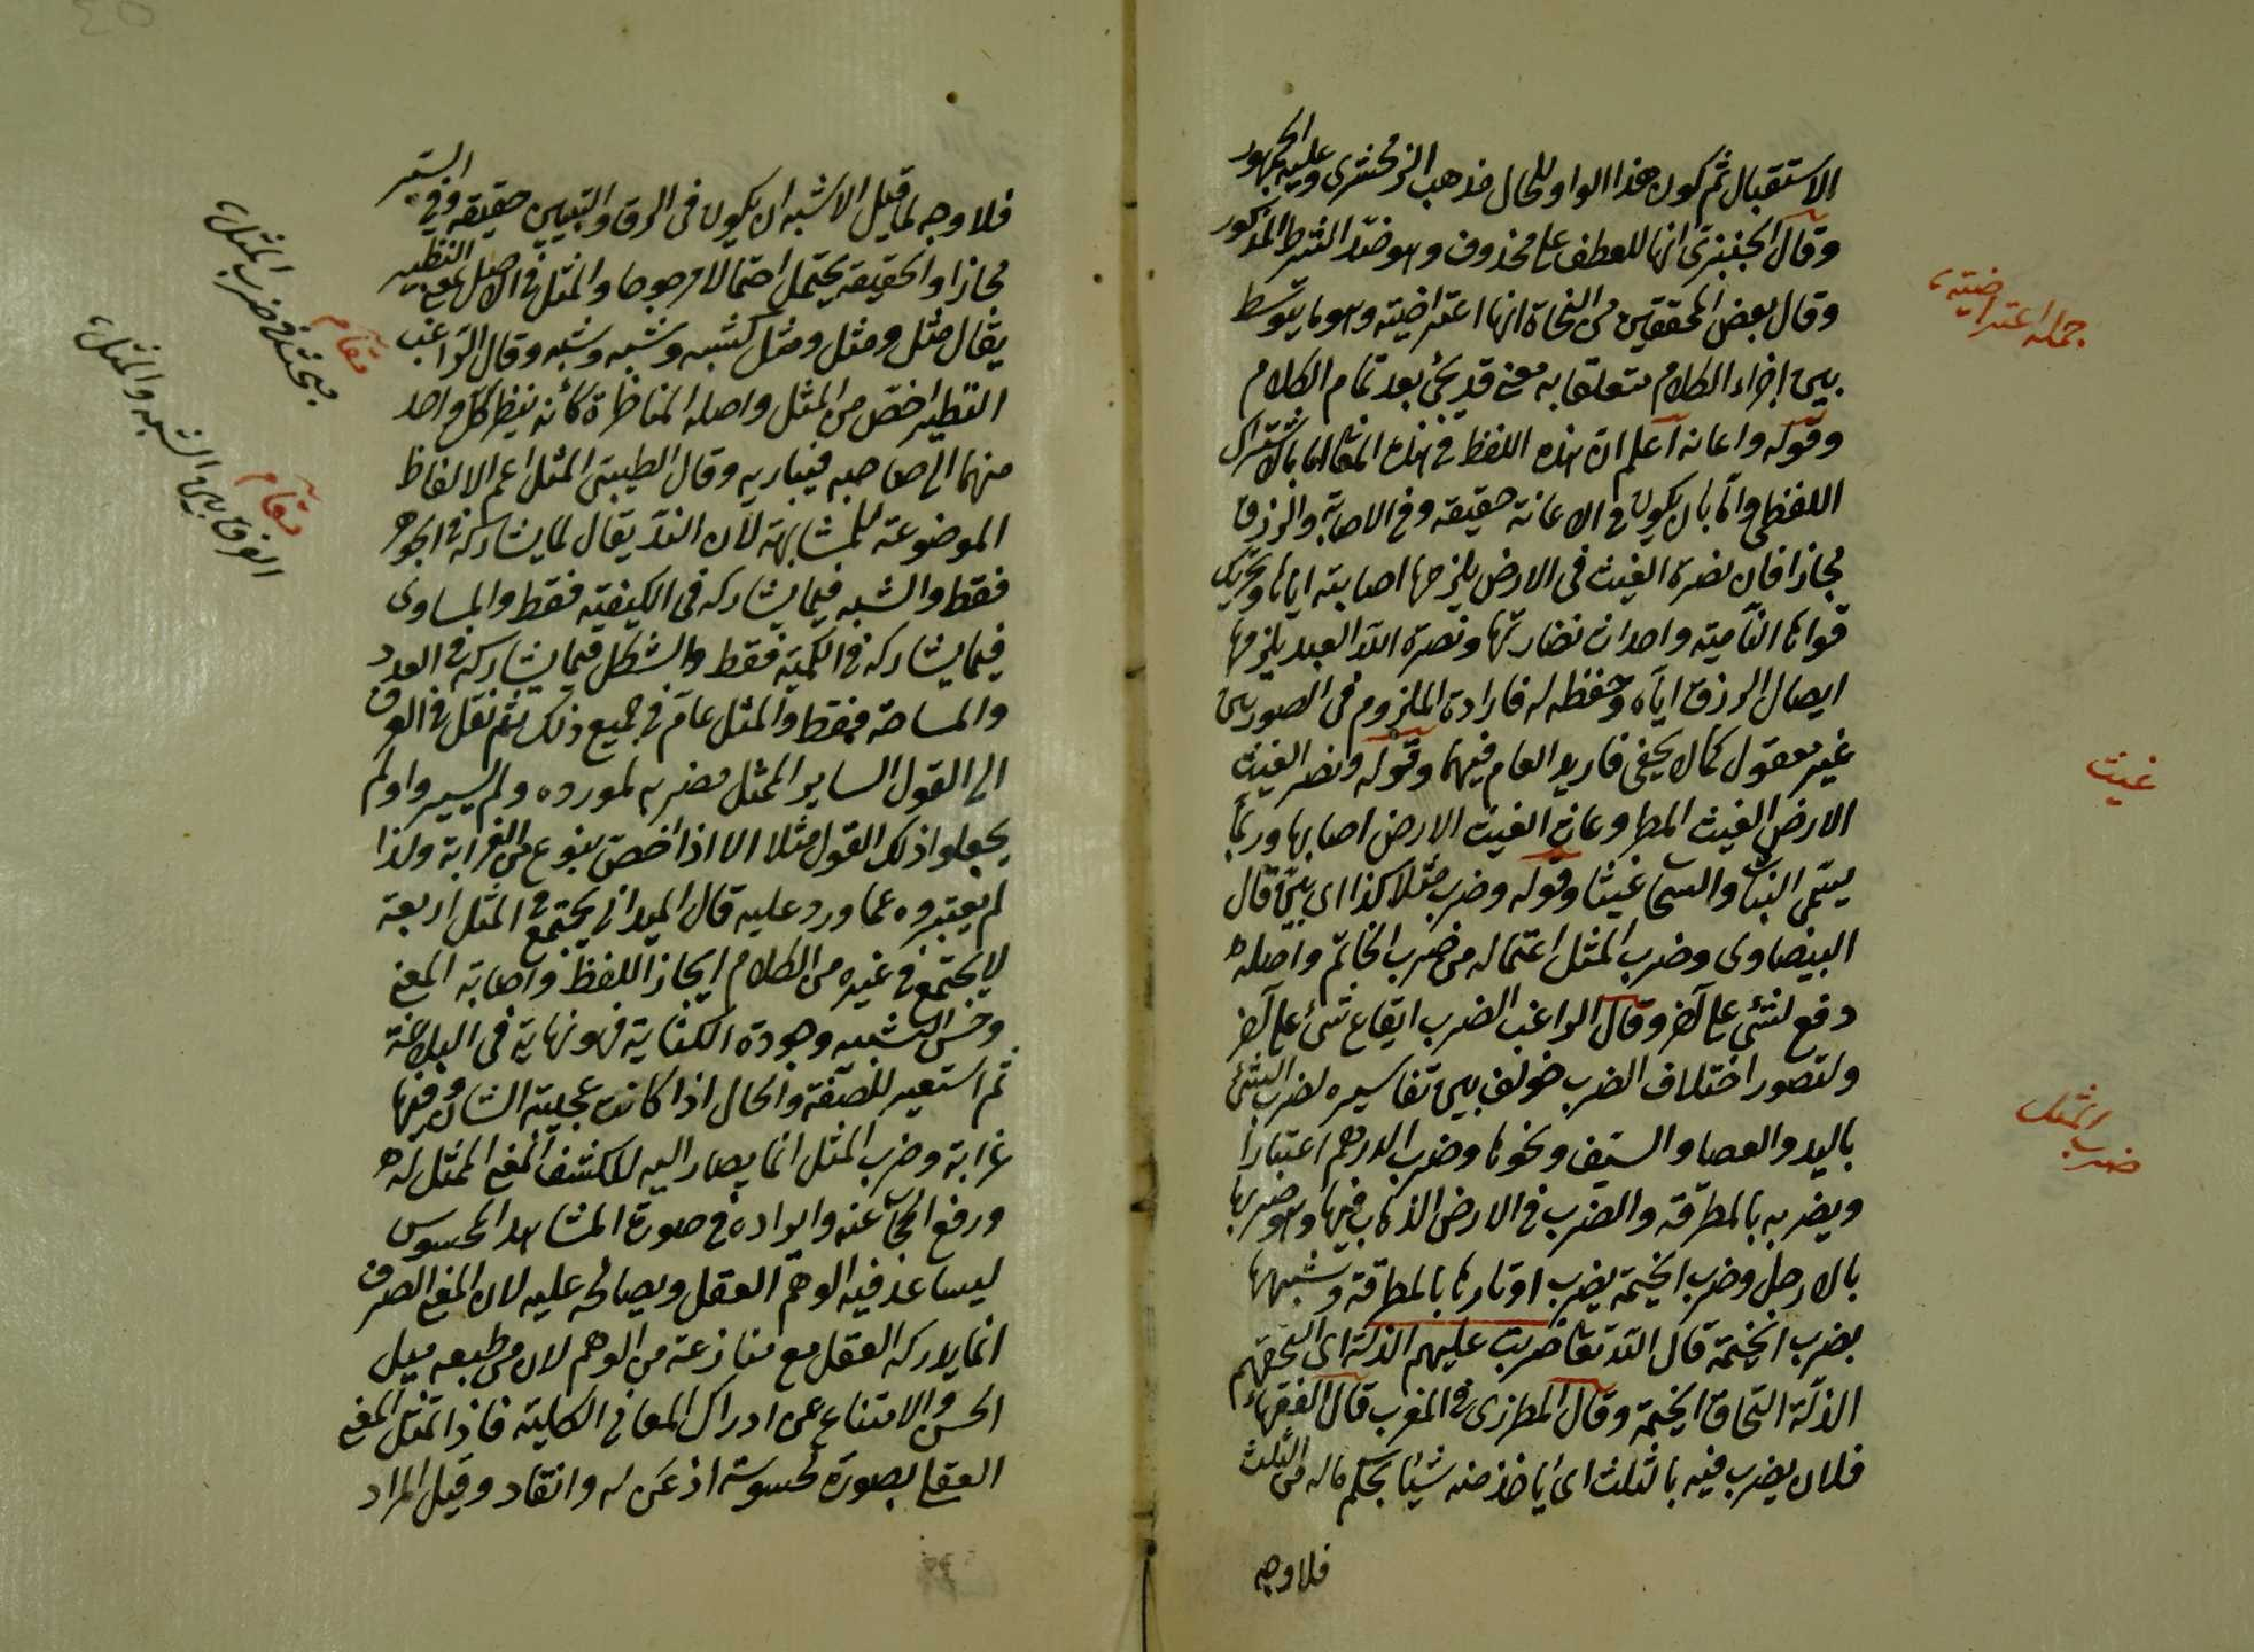 الاستقبال ثم كون هذا الواو للحال مذهب الزمخشرى وعليه الجمهور
وقال الجنزى انها للعطف على محذوف وهو ضد الشرط المذكور
وقال بعض المحققين من النحاة انها اعتراضية وهو ما يتوسط
بين اجزاء الكلام متعلقا به معنى قد يجئ بعد تمام الكلام
وقوله واعانه اعلم ان هذه اللفظ فى هذه المعانى اما بالاشتراك
اللفظى واما بان يكون فى الاعانة حقيقة وفى الاصابة والرزق
مجازا فان نصرة الغيث فى الارض يلزمها اصابته اياها وتحريك
قواها النامية واحداث نضارتها ونصرة الله العبد يلزمها
ايصال الرزق اياه وحفظه له فارادة الملزوم فى الصورتين
غير معقول كما لا يخفى فاريد العام فيهما وقوله ونصر الغيث
الارض الغيث المطر وغاث الغيث الارض اصابها وربما
يسمى النبات والسحاب غيثا وقوله وضرب مثلا كذا اى بين قال
البيضاوى وضرب المثل اعتماله من ضرب الخاتم واصله
دفع لشئ على آخر وقال الراغب الضرب ايقاع شئ على آخر
ولتصور اختلاف الضرب خولف بين تفاسيره لضرب الشئ
باليد والعصا والسيف ونحوها وضرب الدرهم اعتبارا
ويضربه بالمطرقة والضرب فى الارض الذهاب فيها وهو ضربها
بالارجل وضرب الخيمة يضرب اوتادها بالمطرقة وشبهها
بضرب الخيمة قال الله تعا ضربت عليهم الذلة اى التحفتهم
الذلة التحاف الخيمة وقال المطرزى فى المغرب قال الفقهاء
فلان يضرب فيه بالثلث اى ياخذ منه شيئا بحكم ماله من الثلث
فلاوجه
جمله اعتراضيته
غيث
ضرب المثل
فلاوجه لما قيل الاشبه ان يكون فى الرق والتبيين حقيقة وفى السير
مجازا والحقيقة يحتمل احتمالا مرجوحا والمثل فى الاصل بمعنى النظير
يقال مثل ومثل ومثل كشبه وشبه وشبه وقال الراغب
النظير اخص من المثل واصله المناظرة كأنه ينظر كل واحد
منهما الى صاحبه فيباريه وقال الطيبى المثل اعم الالفاظ
الموضوعة للمشابهة لان الند يقال لما يشاركه فى الجوهر
فقط والشبه فيما يشاركه فى الكيفية فقط والمساوى
فيما يشاركه فى الكمية فقط والشكل فيما يشاركه فى العدد
والمساحة فقط والمثل عام فى جميع ذلك ثم نقل فى العرف
الى القول الساير الممثل مضربه لمورده ولم يسيروا ولم
يجعلوا ذلك القول مثلا الا اذا خص بنوع من الغرابة ولذا
لم يغيروه عما ورد عليه قال الميدانى يجتمع فى المثل اربعة
لا يجتمع فى غيره من الكلام ايجاز اللفظ واصابة المعنى
وحسن التشبيه وجودة الكناية فهو نهاية فى البلاغة
ثم استعير للصفة والحال اذا كانت عجيبة الشان وفيها
غرابة وضرب المثل انما يصار اليه لكشف المعنى الممثل له
ورفع الحجاب عنه وايراده فى صورة المشاهد المحسوس
ليساعد فيه الوهم العقل ويصالحه عليه لان المعنى الصرف
انما يدركه العقل مع منازعة من الوهم لان من طبعه ميل
الحس والامتناع عن ادراك المعانى الكلية فاذا تمثل المعنى
العقلى بصورة محسوسة اذعن له وانقاد وقيل المراد
مقام
مبحث فى ضرب المثل
مقام
الفرق بين الشبه والمثل